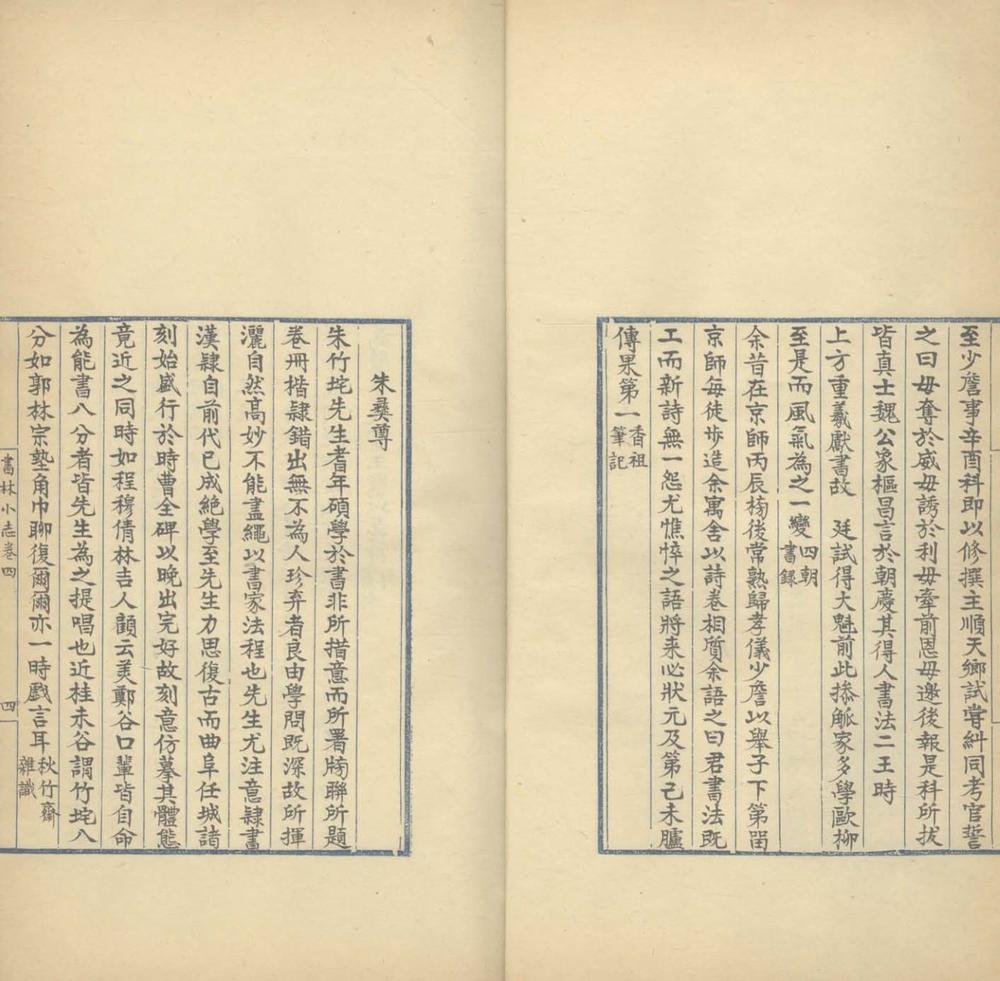 至少詹事辛酉科即以修撰主順天鄉試嘗糾同考官誓
之曰毋奪於威毋誘於利毋牽前恩毋邀後報是科所拔
皆真士魏公象樞昌言於朝慶其得人書法二王時
上方重羲獻書故　廷試得大魁前此掞觚家多學歐柳
至是而風氣為之一變四朝書錄
余昔在京師丙辰榜後常熟歸孝儀少詹以舉子下第留
京師每徒步造余寓舍以詩卷相質余語之曰君書法既
工而新詩無一怨尤憔悴之語將来必狀元及第己未臚
傳果第一香祖筆記
朱彝尊
朱竹垞先生耆年碩學於書非所措意而所署牓聯所題
卷冊楷隷錯出無不為人珍弆者良由學問既深故所揮
灑自然高妙不能盡繩以書家法程也先生尤注意隷書
漢隷自前代已成絶學至先生力思復古而曲阜任城諸
刻始盛行於時曹全碑以晚出完好故刻意仿摹其體態
竟近之同時如程穆倩林吉人顧云美鄭谷口輩皆自命
為能書八分者皆先生為之提唱也近桂未谷謂竹垞八
分如郭林宗墊角巾聊復爾爾亦一時戲言耳秋竹齋雜識
書林小志卷四
四